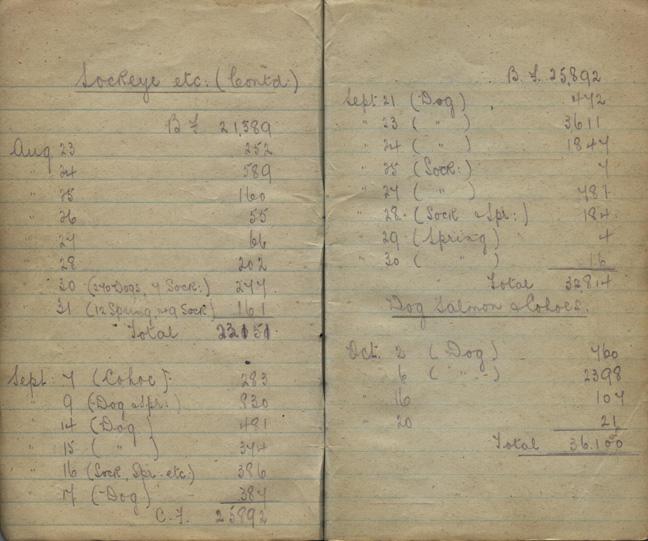 Sockeye etc. (Contd)
B F 21,389
Aug 23 252
" 24 589
" 25 160
" 26 55
" 27 66
" 28 202
" 30 (270 Dogs, 7 Sock:) 277
" 31 (12 Spring, 149 Sock) 161
Total 23151
Sept 7 (Cohoe) 283
" 9 (Dog & Spr:) 830
" 14 (Dog) 481
" 15 ( " ) 374
" 16 (Sock, Spr. etc) 386
" 17 (Dog) 387
C.F. 25892
B.F. 25,892
Sept 21 (Dog) 472
" 23 ( " ) 3611
" 24 ( " ) 1847
" 25 (Sock:) 7
" 27 ( " ) 781
" 28 (Sock & Spr:) 184
" 29 (Spring) 4
" 30 ( " ) 16
Total 32814
Dog Salmon & Cohoes.
Oct. 2 (Dog) 760
" 6 ( " ) 2398
" 16 107
" 20 21
Total 36.100